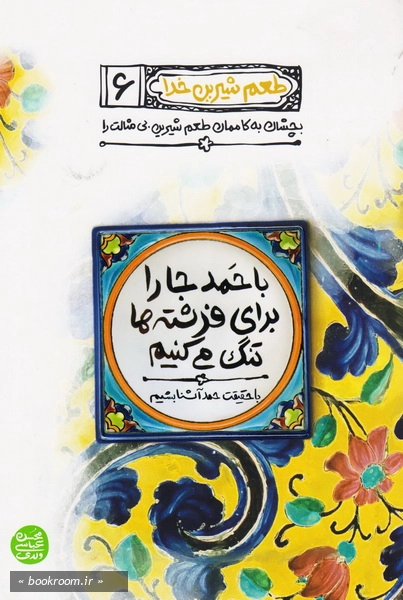 طعم شیرین خدا
۶
بچشان به کاممان طعم شیرین بی مثالت را
با حَمد جا را
برای فرشته ها
تنگ می کنیم
با حقیقت حمد آشنا بشیم
محسن
عباسی
ولدی
« bookroom.ir »